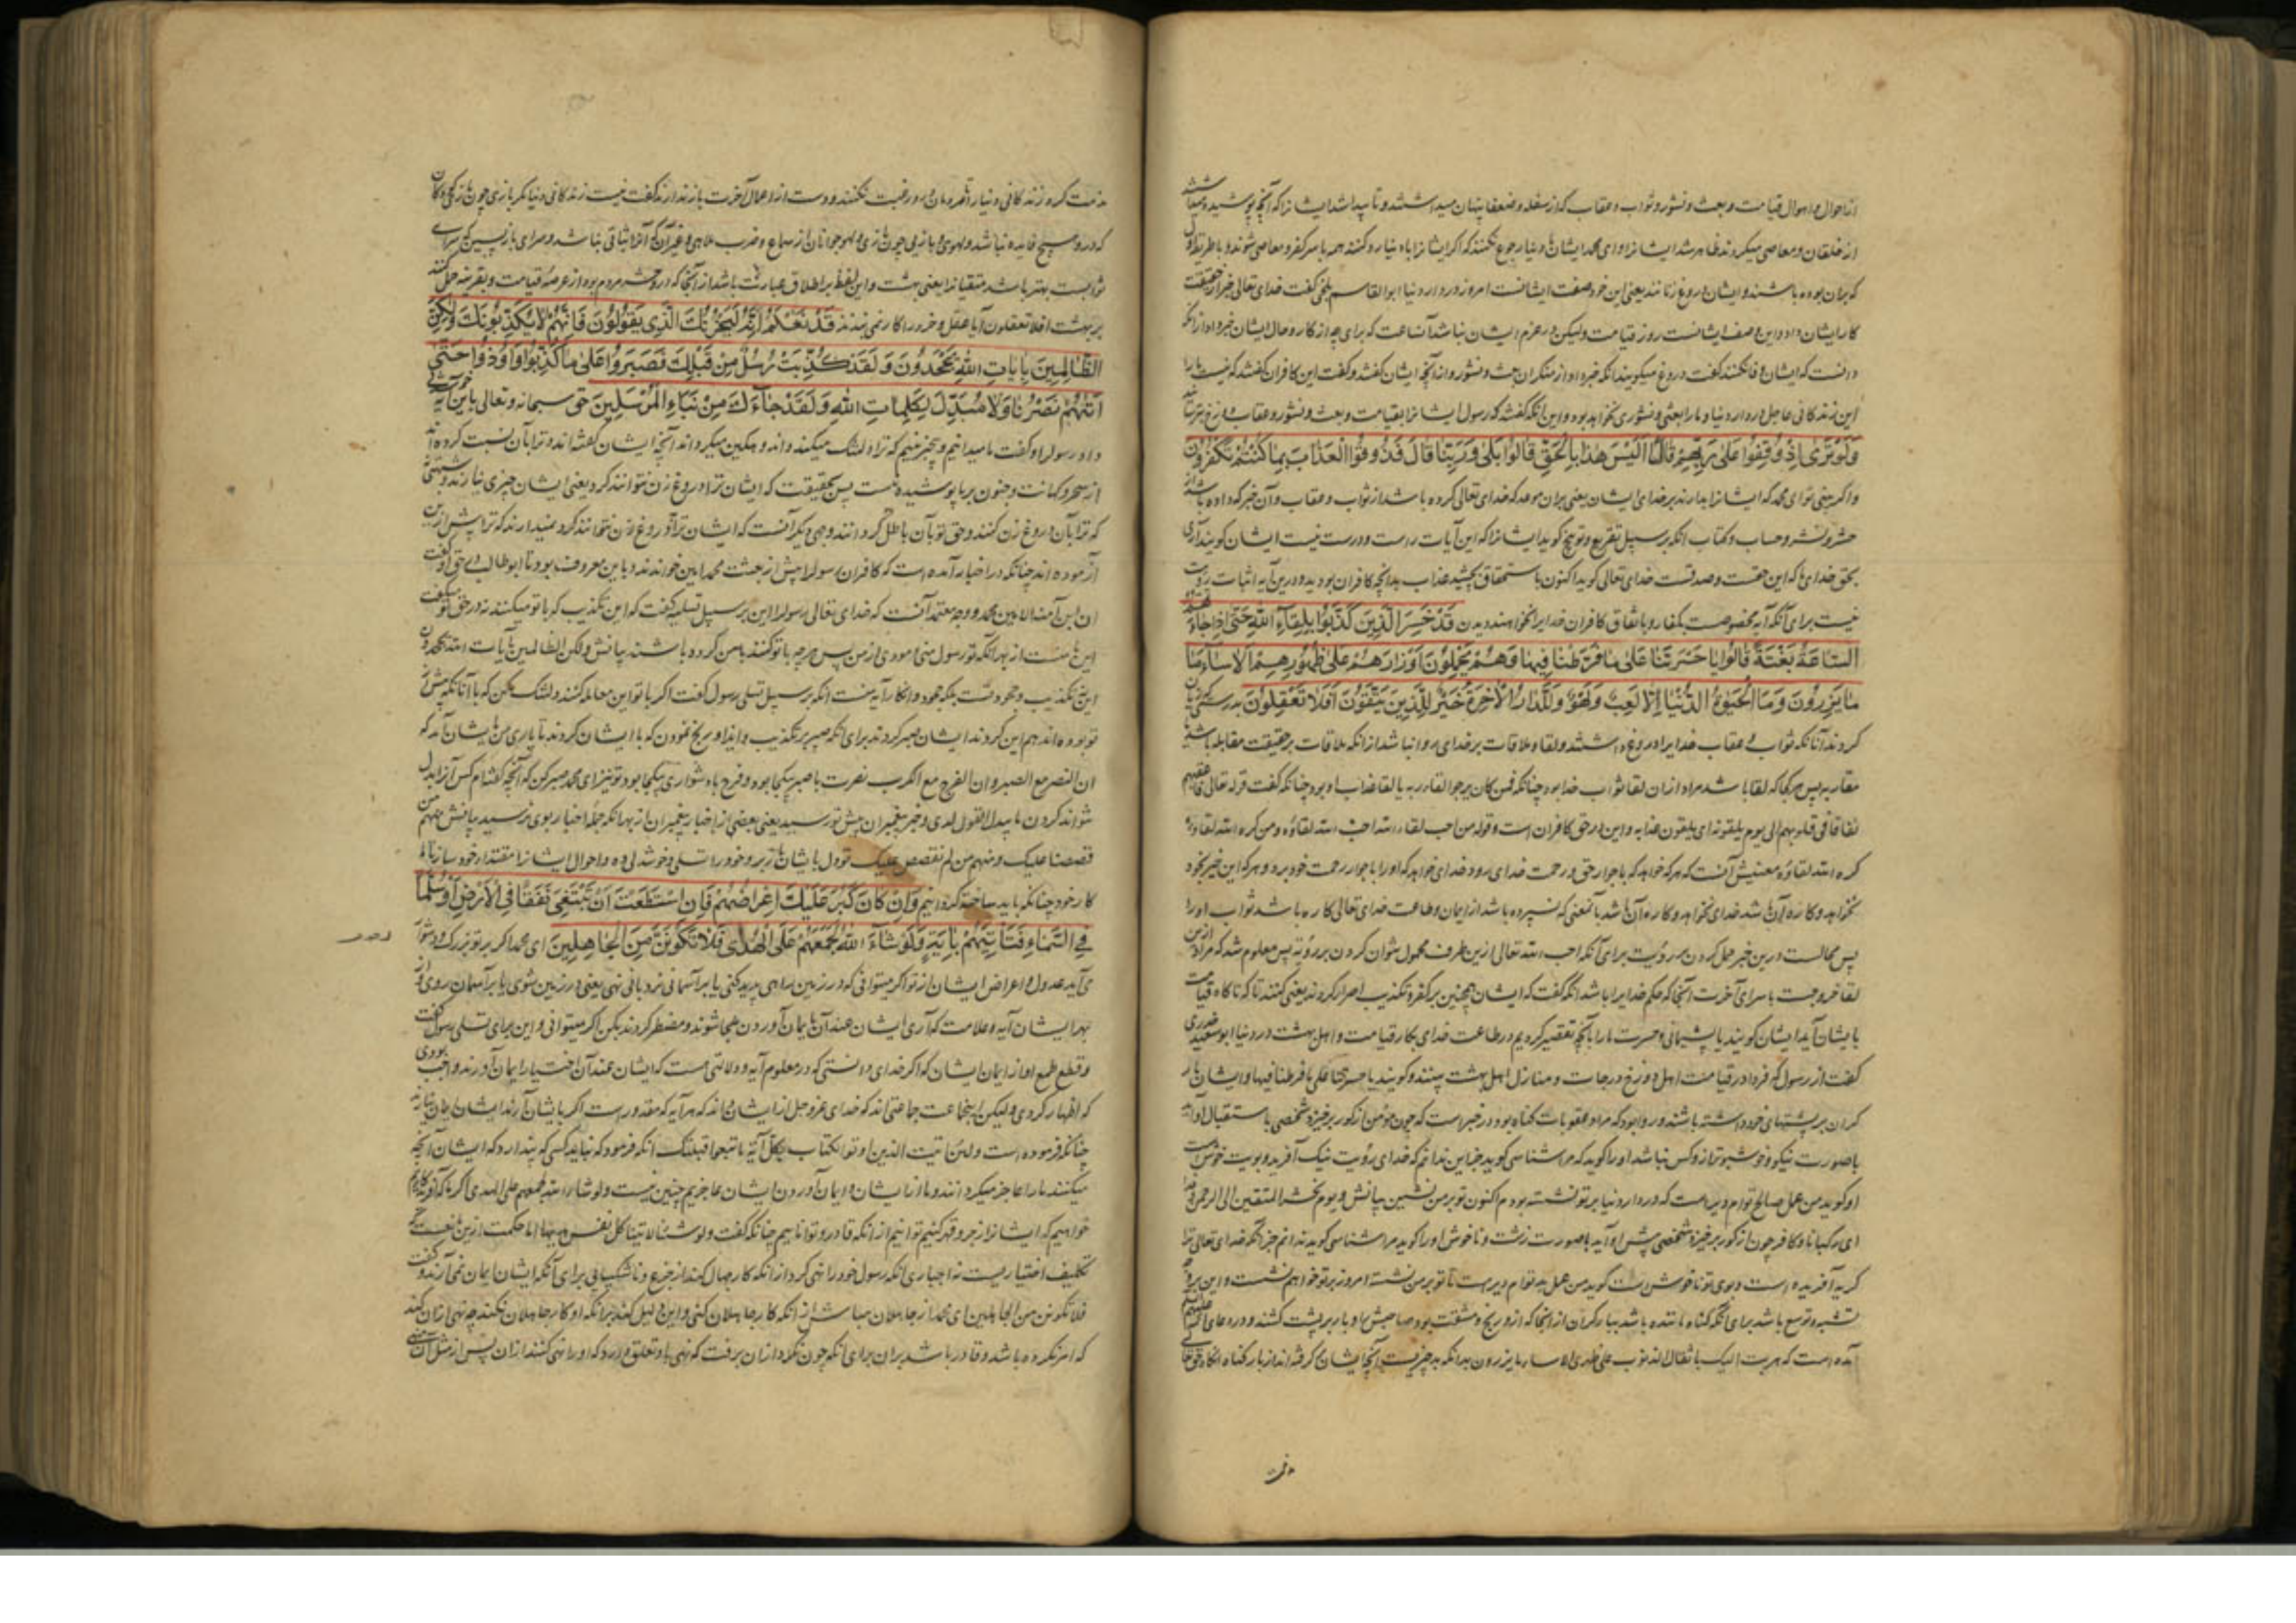 از احوال و اهوال قیامت و بعث و نشور و ثواب و عقاب که از سفله و ضعفا پنهان میداشتند و تا پیدا شد ایشانرا که آنچه پوشیده
از خلقان و معاصی میکردند ظاهر شد ایشانرا و ای محمد ایشان با دنیا رجوع نکنند که اگر ایشانرا با دنیا رد کنند همه با سر کفر و معاصی شوند و با طریقه اول
که بران بوده باشند و ایشان دروغ زنانند یعنی این خود صفت ایشانست امروز در دار دنیا ابوالقاسم بلخی گفت خدای تعالی خبر از حقیقت
کار ایشان داد و این وصف ایشانست روز قیامت ولیکن در عزم ایشان نباشد آن ساعت که برای چه از کار و حال ایشان خبر داد از آنکه
دانست که ایشان وفا نکنند گفت دروغ میگویند آنکه خبر داد از منکران بعث و نشور و از آنچه ایشان گفتند و گفت این کافران گفتند که نیست ما را
این زندگانی عاجل در دار دنیا و ما را بعثی و نشوری نخواهد بود و این آنکه گفتند که رسول ایشانرا بقیامت و بعث و نشور و عقاب دوزخ بترساند
وَلَوْ تَرَىٰ اِذْ وُقِفُوا عَلىٰ رَبِّهِمْ قَالَ اَلَيْسَ هٰذَا بِالْحَقِّ قَالُوا بَلىٰ وَرَبِّنَا قَالَ فَذُوقُوا الْعَذَابَ بِمَا كُنْتُمْ تَكْفُرُونَ
و اگر بینی تو ای محمد که ایشانرا بدارند بر خدای ایشان یعنی بران موعد که خدای تعالی کرده باشد از ثواب و عقاب و آن خبر که داده باشد از
حشر و نشر و حساب و کتاب آنکه بر سبیل تقریع و توبیخ گوید ایشانرا که این آیات راست و درست نیست ایشان گویند آری
بحق خدای ما که این حقست و صدقست خدای تعالی گوید اکنون باستحقاق بچشید عذاب بدانچه کافران بودید و درین آیه اثبات رؤیت
نیست برای آنکه آیه مخصوصست بکفار و باتفاق کافران خدایرا نخواهند دیدن قَدْ خَسِرَ الَّذِينَ كَذَّبُوا بِلِقَاءِ اللهِ حَتّىٰ اِذَا جَاءَتْهُمُ
السَّاعَةُ بَغْتَةً قَالُوا يَا حَسْرَتَنَا عَلىٰ مَا فَرَّطْنَا فِيهَا وَهُمْ يَحْمِلُونَ اَوْزَارَهُمْ عَلىٰ ظُهُورِهِمْ اَلَا سَاءَ مَا
مَا يَزِرُونَ وَمَا الْحَيٰوةُ الدُّنْيَا اِلَّا لَعِبٌ وَلَهْوٌ وَلَلدَّارُ الْاٰخِرَةُ خَيْرٌ لِلَّذِينَ يَتَّقُونَ اَفَلَا تَعْقِلُونَ بدرستی که زیان
کردند آنانکه ثواب و عقاب خدایرا دروغ داشتند و لقا و ملاقات بر خدای روا نباشد از آنکه ملاقات بر حقیقت مقابله باشد یا
مقاربه پس هر کجا که لقا باشد مراد از آن لقا ثواب خدا بود چنانکه فمن کان یرجو القاء ربه یا لقا عذاب او بود چنانکه گفت قوله تعالی فاعقبهم
نفاقا فی قلوبهم الی یوم یلقونه ای یلقون عذابه و این در حق کافران است و قوله من احب لقاء الله احب الله لقاؤه و من کره الله لقاؤه
کره الله لقاؤه معنیش آنست که هر که خواهد که با جوار حق و رحمت خدای رود خدای خواهد که او را با جوار رحمت خود برد و هر که این خبر بخود
نخواهد و کاره آن باشد خدای نخواهد و کاره آن باشد بآنمعنی که نسپرده باشد از ایمان و طاعت خدای تعالی کاره باشد ثواب او را
پس محالست درین خبر حمل کردن بر رؤیت برای آنکه احب الله تعالی ازین طرف محمول نتوان کردن بر رؤیة پس معلوم شد که مراد از من
لقا خروجست با سرای آخرت آنجا که حکم خدایرا باشد آنکه گفت که ایشان همچنین بر کفر و تکذیب اصرار کردند یعنی کنند تا که ناگاه قیامت
بایشان آید ایشان گویند یا پشیمانی و حسرت ما را بآنچه تقصیر کردیم در طاعت خدای بکار قیامت و اهل بهشت در دنیا ابو سعید خدری
گفت از رسول که فردا در قیامت اهل دوزخ درجات و منازل اهل بهشت بینند و گویند یا حسرتنا علی ما فرطنا فیها و ایشان بار
گران بر پشتهای خود داشته باشند و روا بود که مراد عقوبات گناه بود در خبر است که چون مؤمن از گور برخیزد شخصی باستقبال او آید
باصورت نیکو و خوشبوتر از و کس نباشد او را گوید که مرا شناسی گوید جز این ندانم که خدای رؤیت نیک آفرید و بویت خوش است
او گوید من عمل صالح توام دیر است که در دار دنیا بر تو نشسته بودم اکنون تو بر من نشین بیانش و یوم نحشر المتقین الی الرحمن وفدا
ای رکبانا و کافر چون از گور برخیزد شخصی پیش او آید باصورت زشت و ناخوش او را گوید مرا شناسی گوید ندانم جز آنکه خدای تعالی ترا
کریه آفریده است و بوی تو ناخوش است گوید من عمل بد توام دیر است تا تو بر من نشسته امروز بر تو خواهم نشست و این بر وجه
تشبیه و توسع باشد برای آنکه گناه مانند باشد ببار گران از آنجا که ازو رنج و مشقت بود صاحبش او بار بر پشت کشند و در دعای
آمده است که هربت الیک باثقال الذنوب علی ظهری الا ساء ما یزرون بدانکه بد چیزیست آنچه ایشان گرفته اند از بار گناه آنکاه حق تعالی
مذمت
مذمت کرد زندگانی دنیا را تا مردمان درو رغبت نکنند و دست از اعمال آخرت باز ندارند گفت نیست زندگانی دنیا مگر بازی چون بازی کودکان
که درو هیچ فایده نباشد و لهوی و بازیی چون بازی و لهو جوانان از سماع و ضرب ملاهی و غیر آن که آنرا ثباتی نباشد و سرای بازپسین که سرای
ثوابست بهتر باشد متقیانرا یعنی بهشت و این لفظ بر اطلاق عبارت باشد از آنجا که در و حشر مردم بود از عرصه قیامت و بقرینه حمل کنند
بر بهشت افلا تعقلون آیا عقل و خرد را کار نمی بندند قَدْ نَعْلَمُ اِنَّهُ لَيَحْزُنُكَ الَّذِى يَقُولُونَ فَاِنَّهُمْ لَا يُكَذِّبُونَكَ وَلٰكِنَّ
الظَّالِمِينَ بِاٰيَاتِ اللهِ يَجْحَدُونَ وَلَقَدْ كُذِّبَتْ رُسُلٌ مِنْ قَبْلِكَ فَصَبَرُوا عَلىٰ مَا كُذِّبُوا وَاُوذُوا حَتّىٰ
اَتٰيهُمْ نَصْرُنَا وَلَا مُبَدِّلَ لِكَلِمَاتِ اللهِ وَلَقَدْ جَاءَكَ مِنْ نَبَاءِ الْمُرْسَلِينَ حق سبحانه و تعالی باین آیه
داد رسولرا و گفت ما میدانیم و بیخبر نه‌ایم که ترا دلتنگ میکند و اندوهگین میگرداند آنچه ایشان گفته اند و ترا بآن نسبت کرده اند
از سحر و کهانت و جنون بر ما پوشیده نیست پس بحقیقت که ایشان ترا دروغ زن نتوانند کرد یعنی ایشان چیزی نیارند و شبهتی
که ترا بآن دروغ زن کنند و حق تو بآن باطل گردانند وجهی دیگر آنست که ایشان ترا دروغ زن نتوانند کرد نپندارند که ترا پیش ازین
آزموده اند چنانکه در اخبار آمده است که کافران رسولرا پیش از بعثت محمد امین خواندند و باین معروف بود تا ابو طالب در حق او گفت
ان ابن آمنة الامین محمد و وجه معتمد آنست که خدای تعالی رسولرا این بر سبیل تسلیه گفت که این تکذیب که با تو میکنند نه در حق تو میکنند
این با منست از بهر آنکه تو رسول منی و مؤدی از من پس هر چه با تو کنند با من کرده باشند بیانش ولکن الظالمین بآیات الله یجحدون
این تکذیب و جحود نیست بلکه جحود و انکار آیه منست آنکه بر سبیل تسلی رسول گفت اگر با تو این معامله کنند دلتنگ مکن که با آنانکه پیش از
تو بوده اند هم این کردند ایشان صبر کردند برای آنکه صبر بر تکذیب و ایذا و رنج نمودن که با ایشان کردند تا یاری من بایشان آمد که
ان النصر مع الصبر و ان الفرج مع الکرب نصرت با صبر بیکجا بود و فرج با دشواری بیکجا بود تو نیز ای محمد صبر کن که آنچه گفته‌ام کس آنرا بدل
نتواند کردن ما یبدل القول لدی و خبر پیغمبران پیش تو رسید یعنی بعضی از اخبار پیغمبران از بهر آنکه جمله اخبار بوی نرسید بیانش منهم من
قصصنا علیک و منهم من لم نقصص علیک تو دل با ایشان بر و خود را تسلی و خوشدلی ده و احوال ایشانرا مقتدای خود ساز تا ما
کار خود چنانکه باید ساخته گردانیم وَاِنْ كَانَ كَبُرَ عَلَيْكَ اِعْرَاضُهُمْ فَاِنِ اسْتَطَعْتَ اَنْ تَبْتَغِىَ نَفَقًا فِى الْاَرْضِ اَوْ سُلَّمًا
فِى السَّمَاءِ فَتَأْتِيَهُمْ بِاٰيَةٍ وَلَوْ شَاءَ اللهُ لَجَمَعَهُمْ عَلَى الْهُدٰى فَلَا تَكُونَنَّ مِنَ الْجَاهِلِينَ ای محمد اگر بر تو بزرگ و دشوار
می آید عدول و اعراض ایشان از تو اگر میتوانی که در زمین راهی پدید کنی یا بر آسمانی نردبانی نهی یعنی در زمین شوی یا بر آسمان روی و از
بهر ایشان آیه و علامت که آری ایشان عند آن بایمان آوردن ملجا شوند و مضطر گردند بکن اگر میتوانی و این برای تسلی رسول گفت
و قطع طمع او از ایمان ایشان که اگر خدای دانستی که در معلوم آیه و دلالتی هست که ایشان عند آن اختیار ایمان آورند واجب بودی
که اظهار کردی ولیکن اینجماعت جماعتی اند که خدای عز و جل از ایشان داند که هر آیه که مقدورست اگر بایشان آرند ایشان ایمان نیارند
چنانکه فرموده است و لئن اتیت الذین اوتوا الکتاب بکل آیة ما تبعوا قبلتک آنکه فرمود که نباید کسی که پندارد که ایشان آنچه
میکنند ما را عاجز میگردانند و ما از ایشان و ایمان آوردن ایشان عاجزیم چنین نیست و لو شاء الله لجمعهم علی الهدی اگر ما
خواهیم که ایشانرا بزجر و قهر کنیم توانیم از آنکه قادر و توانائیم چنانکه گفت و لو شئنا لآتینا کل نفس هدیها اما حکمت ازین مانعست
تکلیف اختیاریست نه اجباری آنکه رسول خود را نهی کرد از آنکه کار جهال کند از جزع و ناشکیبائی برای آنکه ایشان ایمان نمی آرند و گفت
فلا تکونن من الجاهلین ای محمد از جاهلان مباش از آنکه کار جاهلان کنی و این دلیل نکند برآنکه او کار جاهلان نکند چه نهی از آن کند
که امر نکرده باشد و قادر باشد بران برای آنکه چون نکرد از آن برفت که نهی باو تعلق دارد که او را نهی کنند از آن پس از مثل آن